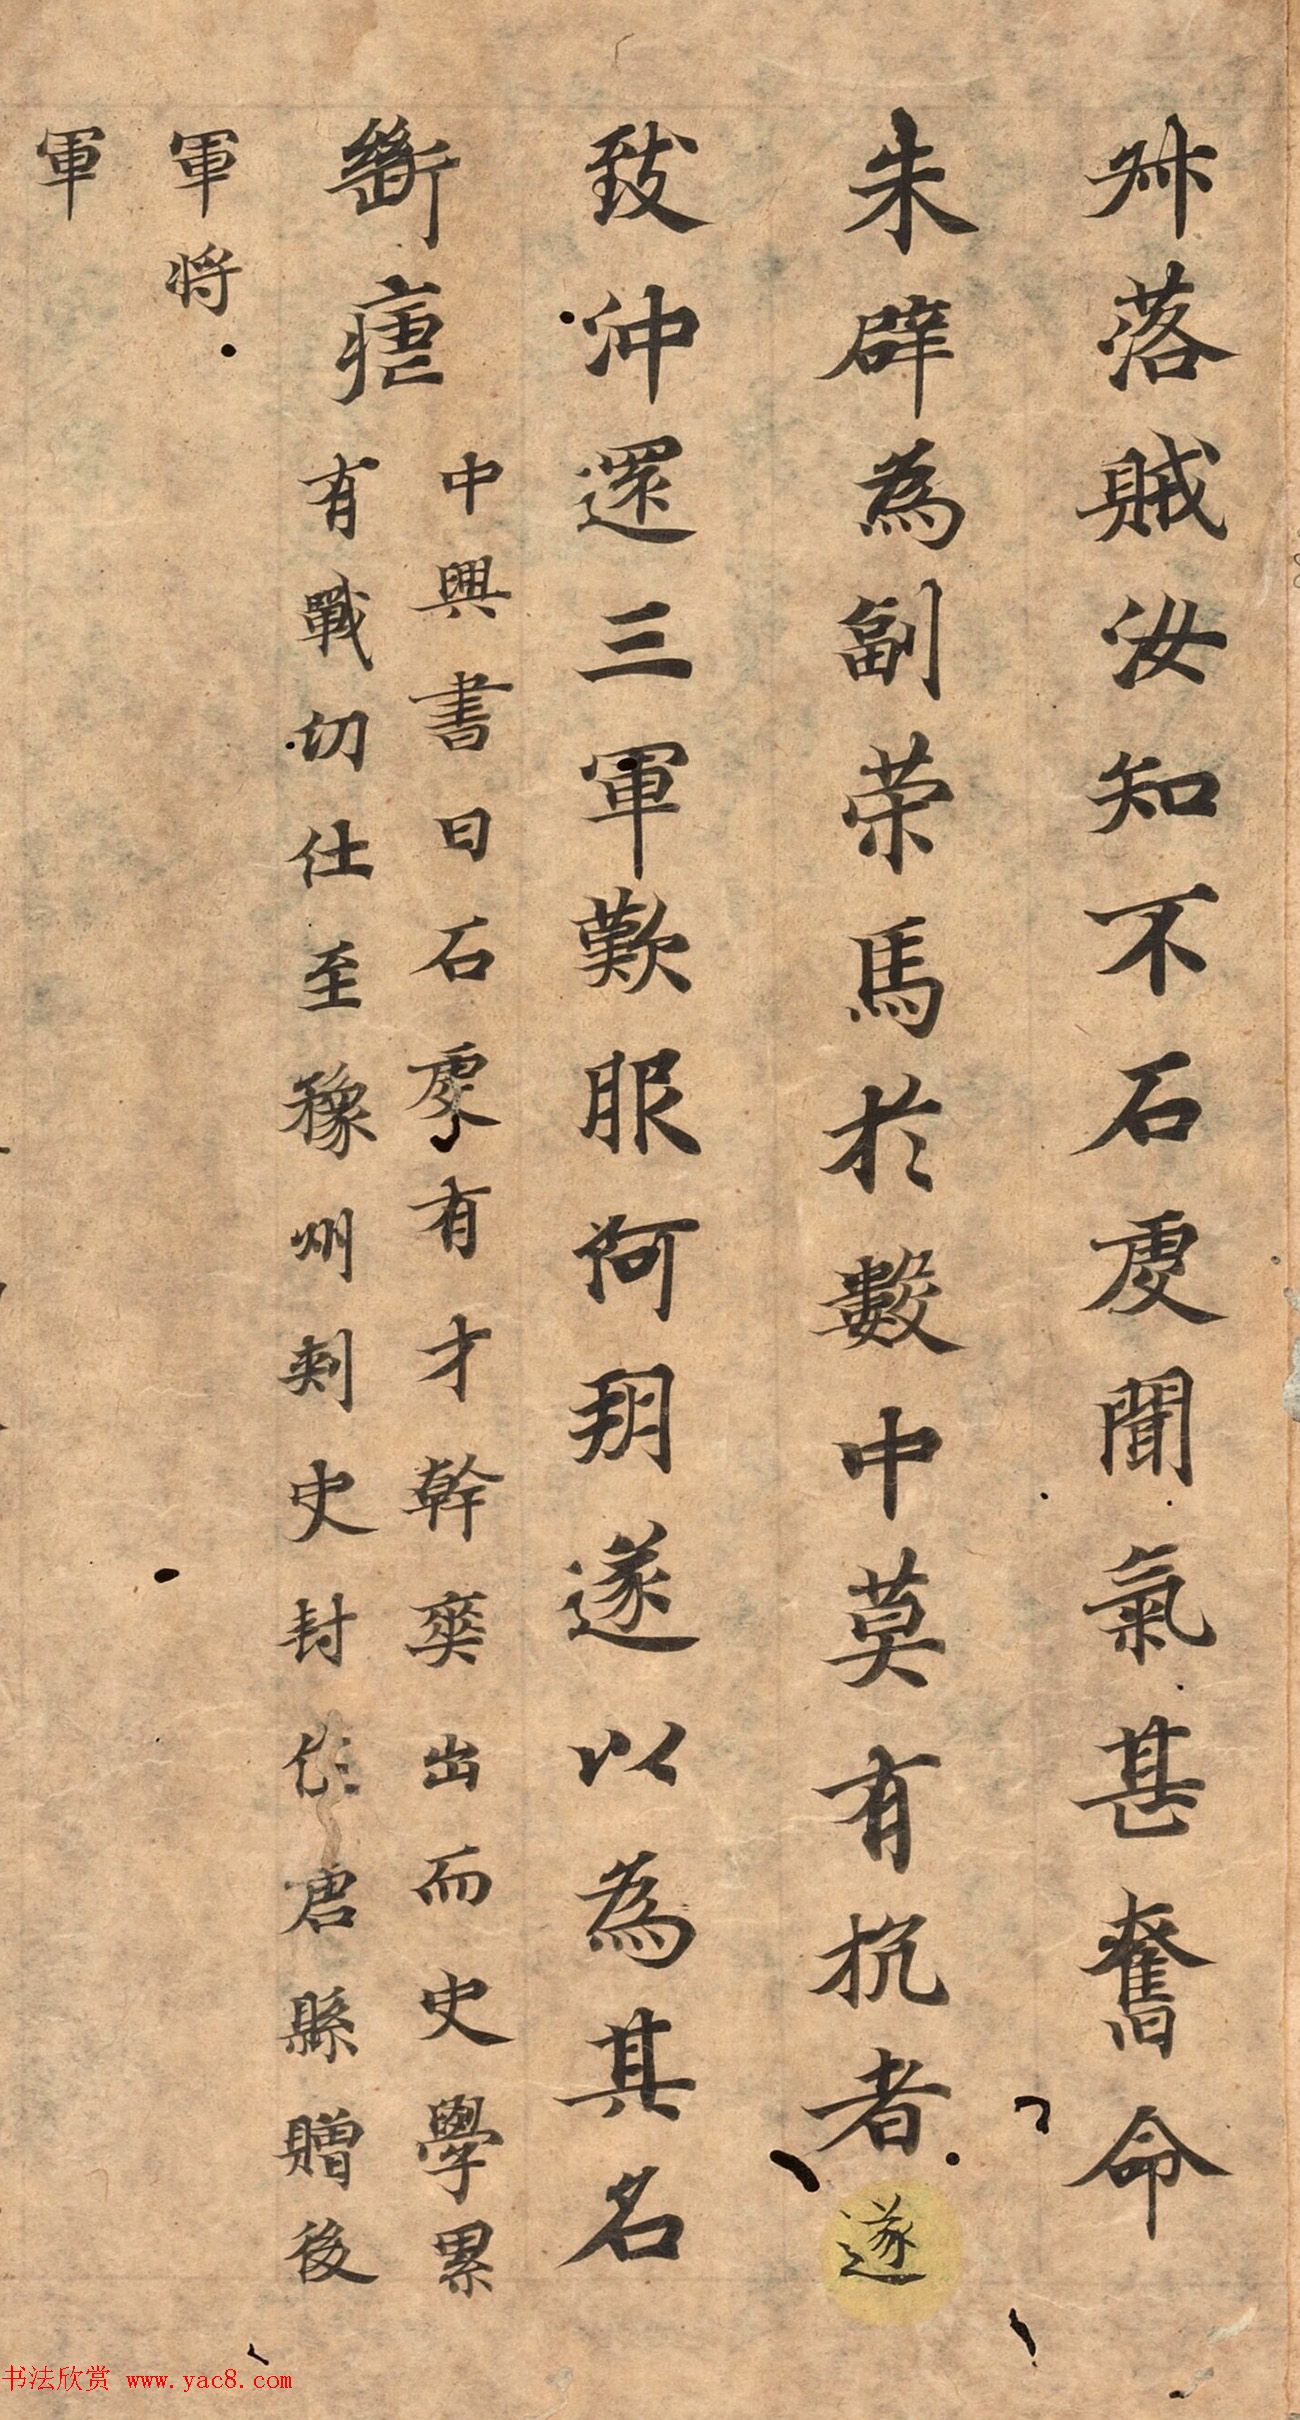 叔落賊汝知不石虔聞氣甚奮命
朱辟為副策馬於數中莫有抗者遂
致沖還三軍歎服河朔遂以為其名
斷瘧
中興書曰石虔有才幹奕出而史學累
有戰功仕至豫州刺史封作唐縣贈後
軍將
軍
书法欣赏 www.yac8.com